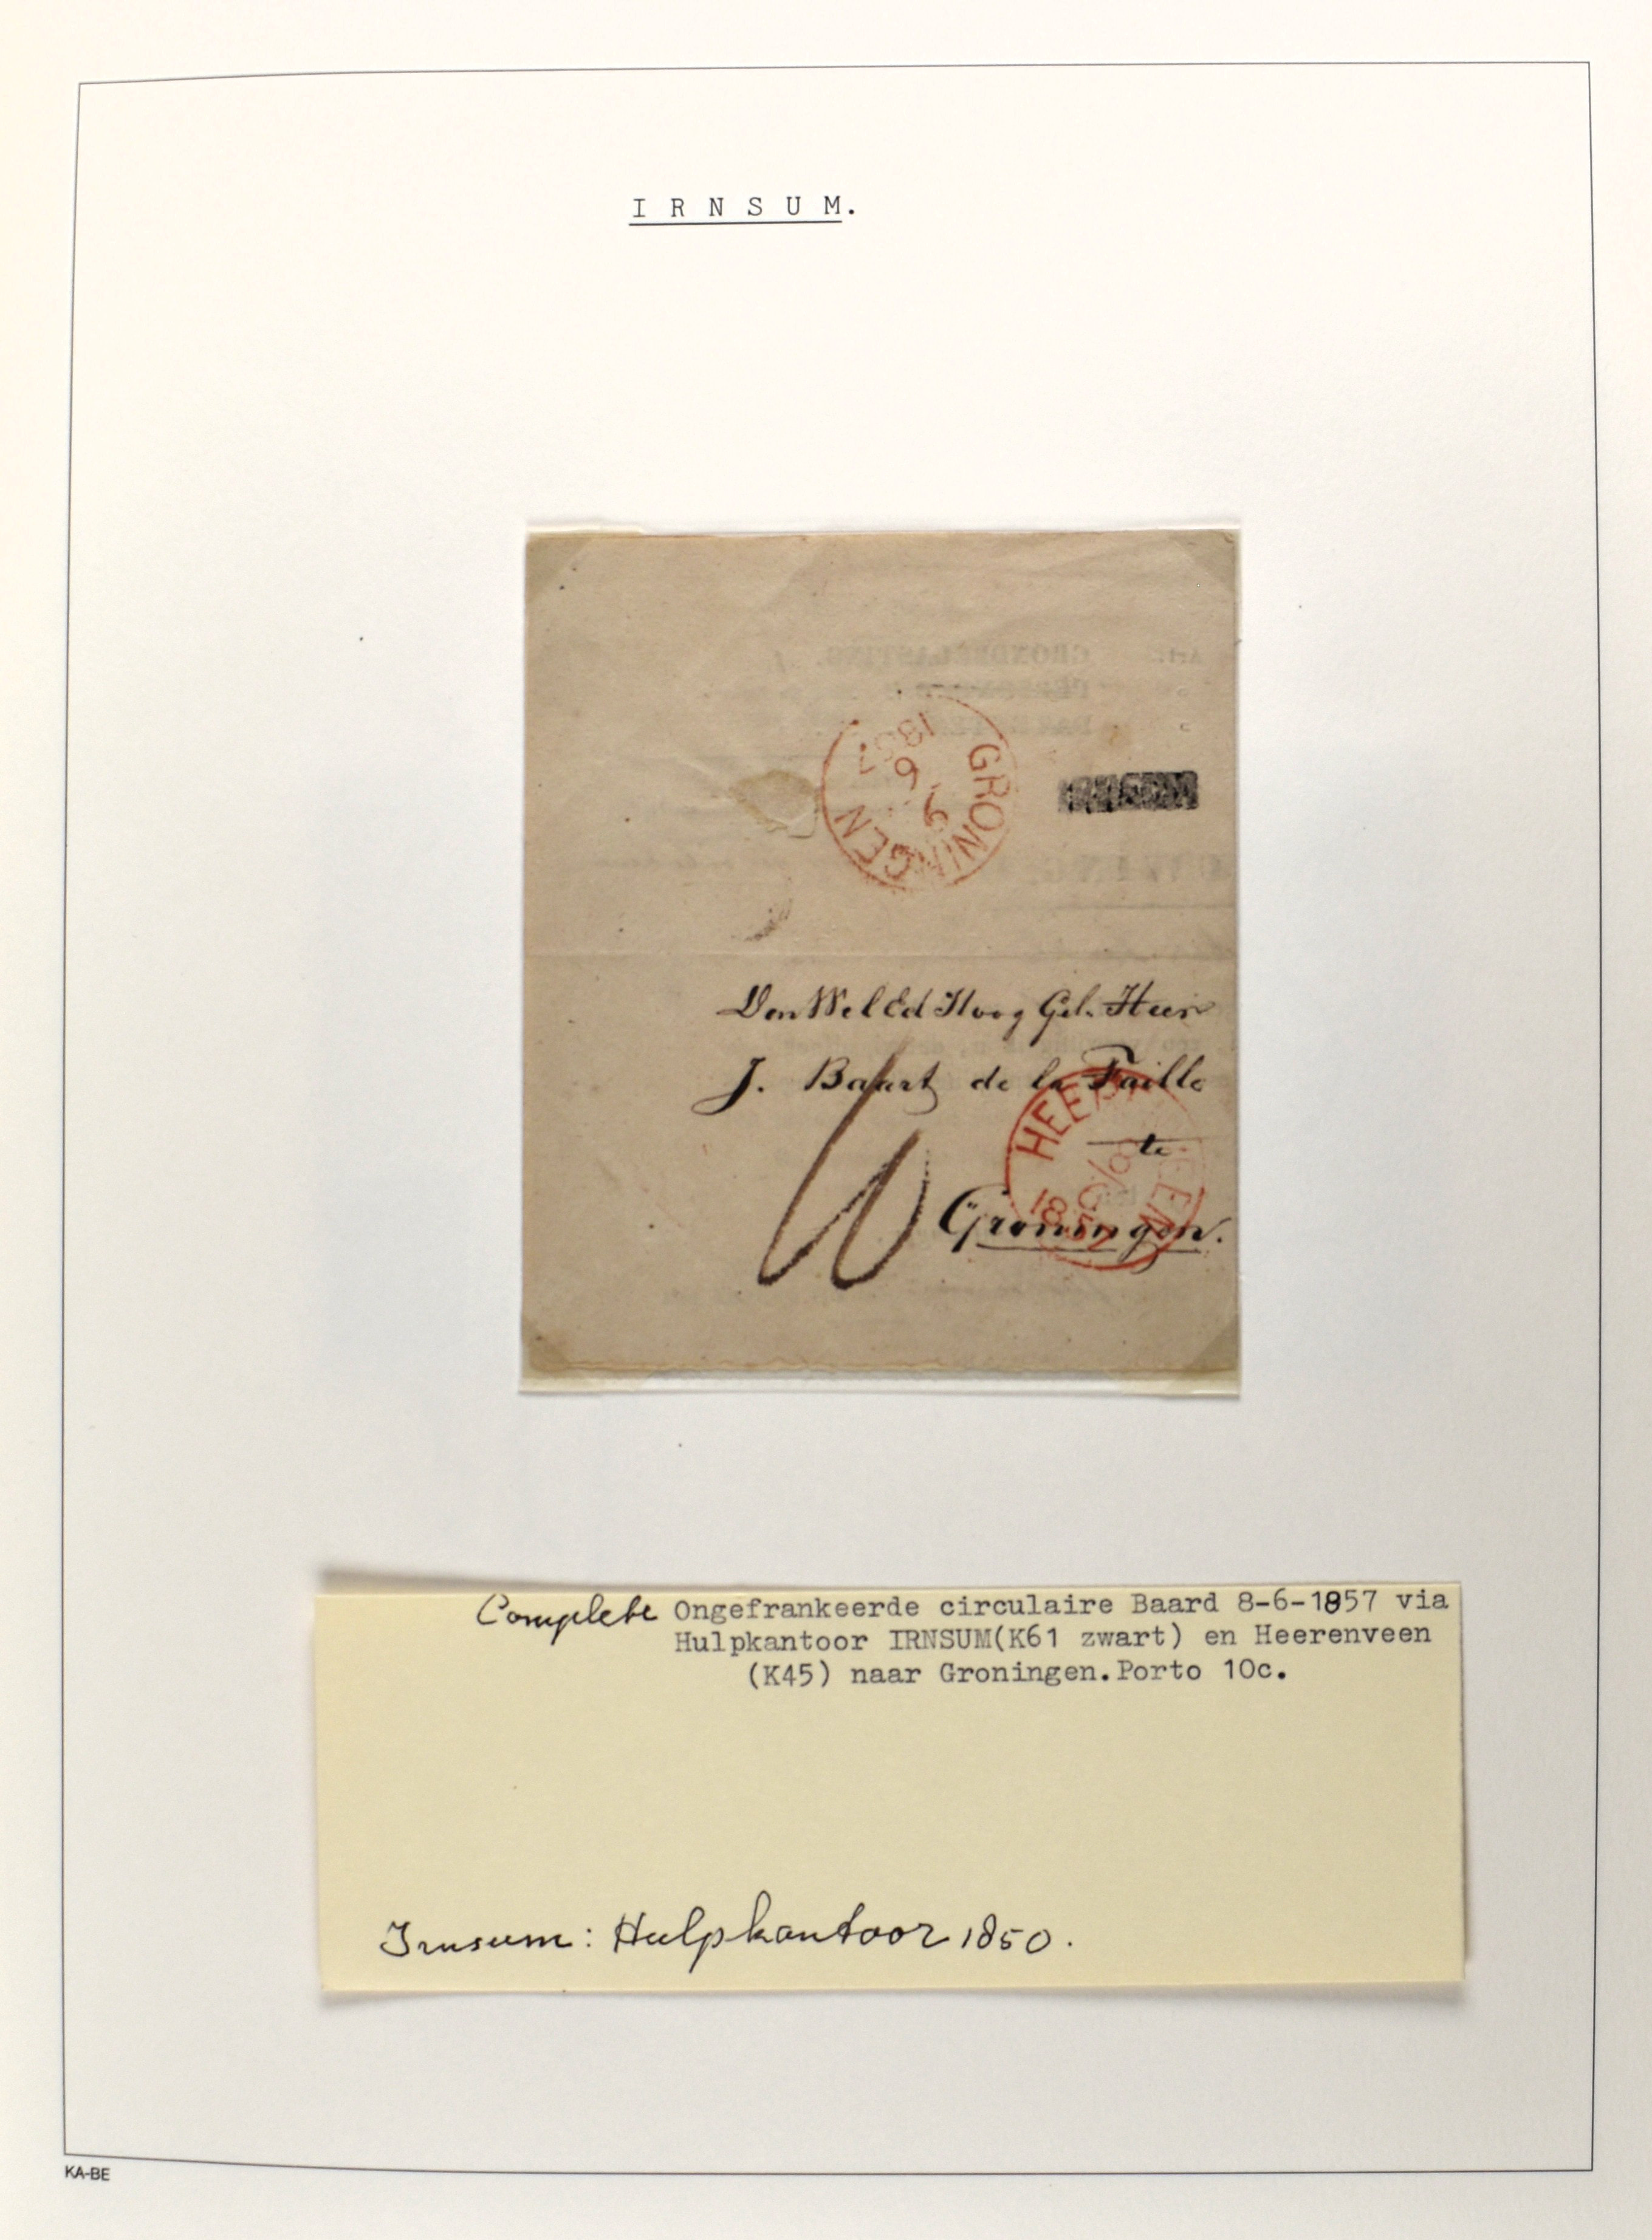 I R N S U M.
GRONINGEN
9
6
1857
Den Wel Ed Hoog Gel. Heer
J. Baart de la Faille
te
Groningen.
10
HEER EEN
8/6
1857
Complete Ongefrankeerde circulaire Baard 8-6-1857 via
Hulpkantoor IRNSUM(K61 zwart) en Heerenveen
(K45) naar Groningen.Porto 10c.
Irnsum: Hulpkantoor 1850.
KA-BE